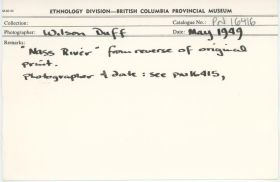 ETHNOLOGY DIVISION—BRITISH COLUMBIA PROVINCIAL MUSEUM
Collection: Catalogue No.: PN 16416
Photographer: Wilson Duff Date: May 1949
Remarks:
"Nass River" from reverse of original
print.
Photographer & date: see PN16415,